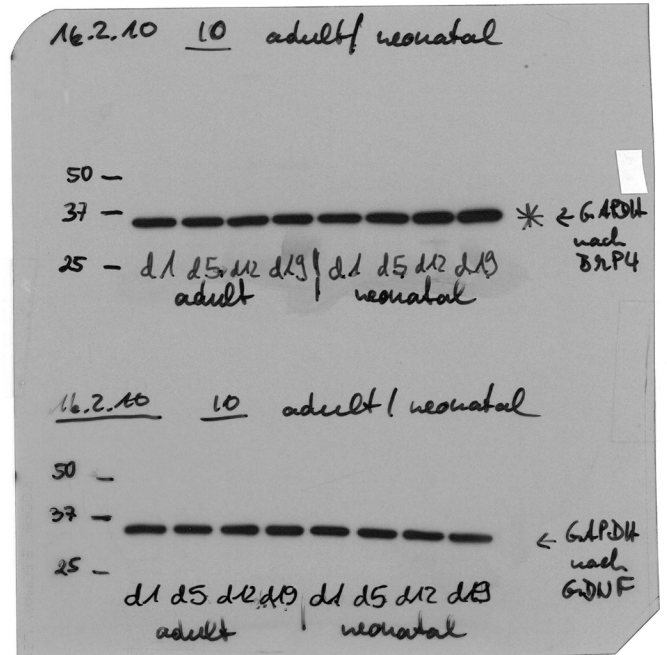 16.2.10 10 adult/ neonatal
50 —
37 — * ← GAPDH
nach
BMP4
25 — d1 d5 d12 d19 | d1 d5 d12 d19
adult neonatal
16.2.10 10 adult / neonatal
50 —
37 —
← GAPDH
nach
GDNF
25 —
d1 d5 d12 d19 | d1 d5 d12 d19
adult neonatal